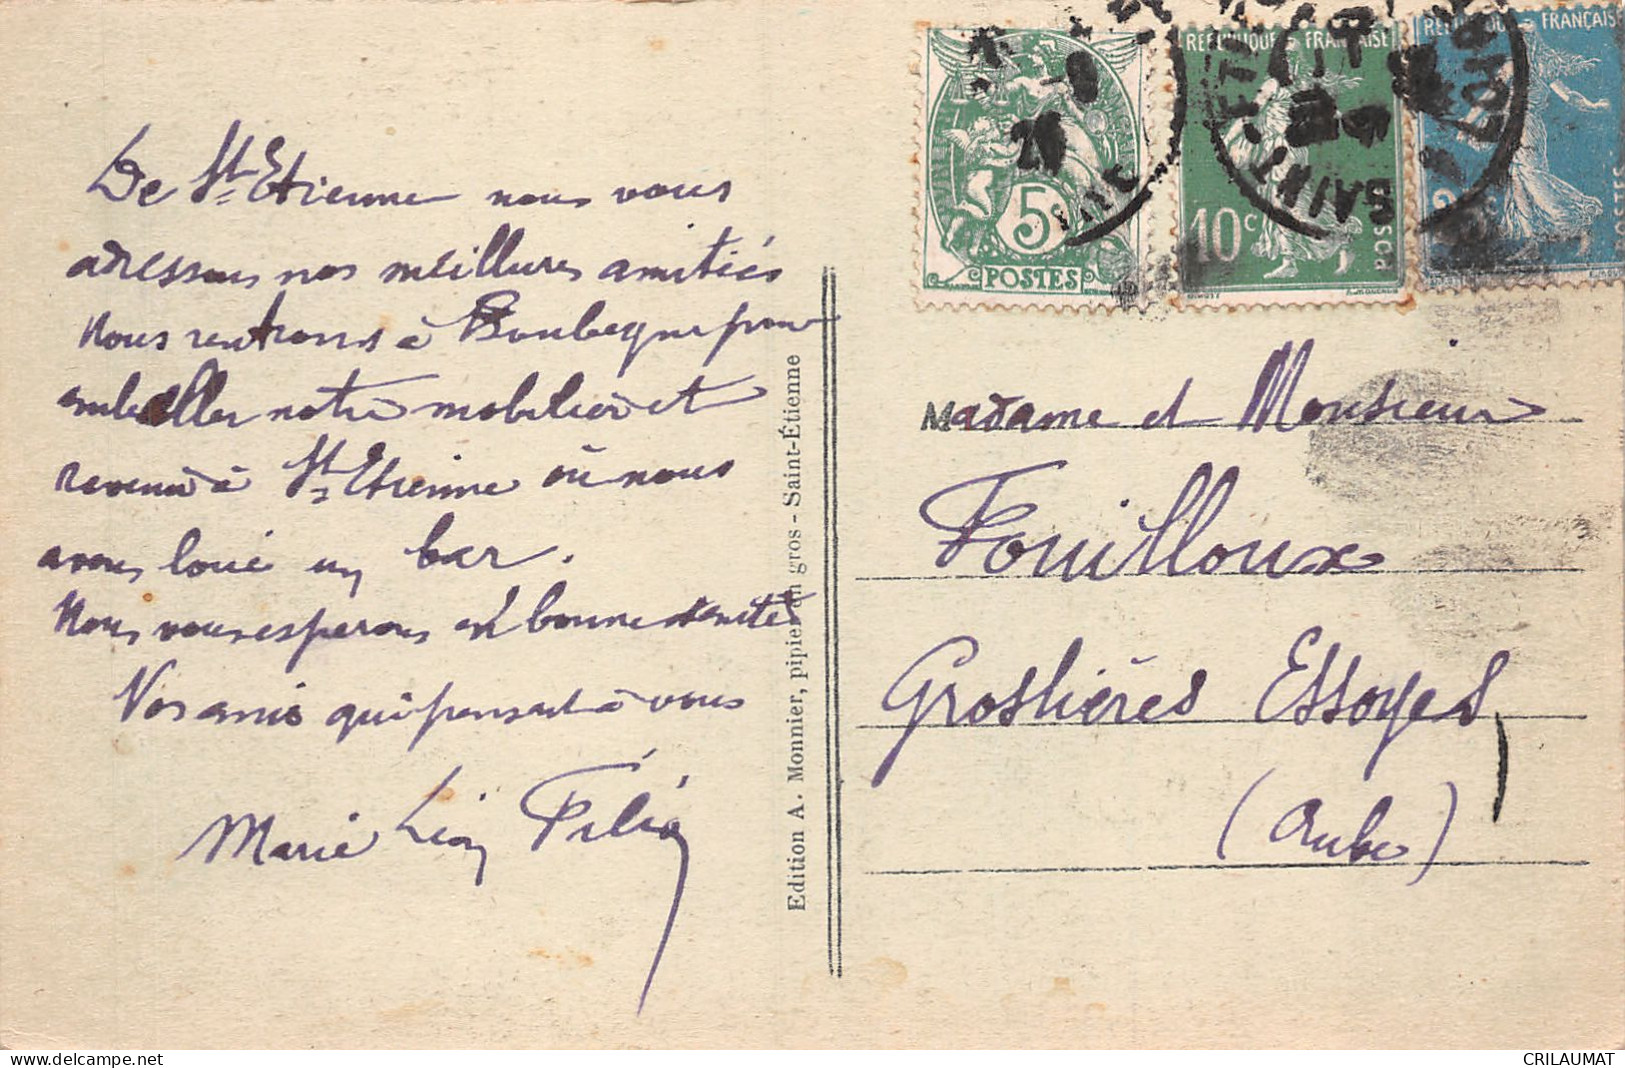 De St Etienne nous vous
adressons nos meillures amitiés
Nous rentrons à pour
emballer notre mobilier et
revenir à St Etienne où nous
avons loué un bar.
Nous vous esperons en bonne santé
Vos amis qui pensent à vous
Marie Léon
Edition A. Monnier, pipier en gros - Saint-Étienne
5c
POSTES
REPUBLIQUE FRANÇAISE
10c
REPUBLIQUE FRANÇAISE
POSTES
SAINT
Madame et Monsieur
Fouilloux
Essoyes
(Aube)
www.delcampe.net
CRILAUMAT